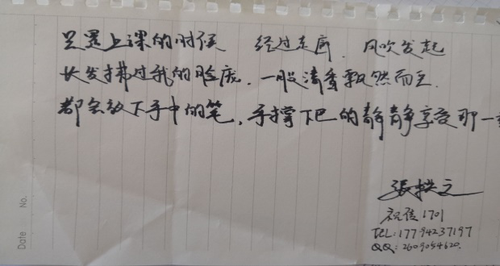 只是上课的时候 经过走廊,风吹发起
长发拂过我的脸庞,一股清香飘然而至.
都会放下手中的笔,手撑下巴的静静享受那一
張拱立
视传1701
TEL:17794237197
QQ:2609054620.
Date
No.